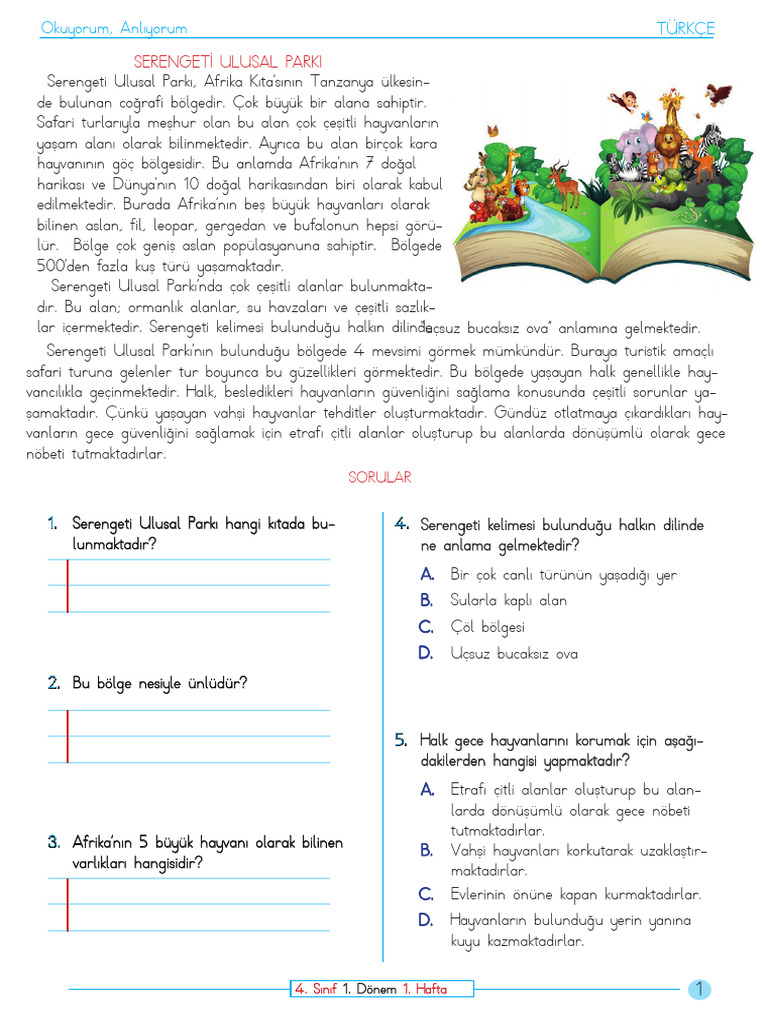 Okuyorum, Anlıyorum
TÜRKÇE
SERENGETİ ULUSAL PARKI
Serengeti Ulusal Parkı, Afrika Kıta'sının Tanzanya ülkesin-
de bulunan coğrafi bölgedir. Çok büyük bir alana sahiptir.
Safari turlarıyla meşhur olan bu alan çok çeşitli hayvanların
yaşam alanı olarak bilinmektedir. Ayrıca bu alan birçok kara
hayvanının göç bölgesidir. Bu anlamda Afrika'nın 7 doğal
harikası ve Dünya'nın 10 doğal harikasından biri olarak kabul
edilmektedir. Burada Afrika'nın beş büyük hayvanları olarak
bilinen aslan, fil, leopar, gergedan ve bufalonun hepsi görü-
lür. Bölge çok geniş aslan popülasyanuna sahiptir. Bölgede
500'den fazla kuş türü yaşamaktadır.
Serengeti Ulusal Parkı'nda çok çeşitli alanlar bulunmakta-
dır. Bu alan; ormanlık alanlar, su havzaları ve çeşitli sazlık-
lar içermektedir. Serengeti kelimesi bulunduğu halkın dilinde "uçsuz bucaksız ova" anlamına gelmektedir.
Serengeti Ulusal Parkı'nın bulunduğu bölgede 4 mevsimi görmek mümkündür. Buraya turistik amaçlı
safari turuna gelenler tur boyunca bu güzellikleri görmektedir. Bu bölgede yaşayan halk genellikle hay-
vancılıkla geçinmektedir. Halk, besledikleri hayvanların güvenliğini sağlama konusunda çeşitli sorunlar ya-
şamaktadır. Çünkü yaşayan vahşi hayvanlar tehditler oluşturmaktadır. Gündüz otlatmaya çıkardıkları hay-
vanların gece güvenliğini sağlamak için etrafı çitli alanlar oluşturup bu alanlarda dönüşümlü olarak gece
nöbeti tutmaktadırlar.
SORULAR
1. Serengeti Ulusal Parkı hangi kıtada bu-
lunmaktadır?
2. Bu bölge nesiyle ünlüdür?
3. Afrika'nın 5 büyük hayvanı olarak bilinen
varlıkları hangisidir?
4. Serengeti kelimesi bulunduğu halkın dilinde
ne anlama gelmektedir?
A. Bir çok canlı türünün yaşadığı yer
B. Sularla kaplı alan
C. Çöl bölgesi
D. Uçsuz bucaksız ova
5. Halk gece hayvanlarını korumak için aşağı-
dakilerden hangisi yapmaktadır?
A. Etrafı çitli alanlar oluşturup bu alan-
larda dönüşümlü olarak gece nöbeti
tutmaktadırlar.
B. Vahşi hayvanları korkutarak uzaklaştır-
maktadırlar.
C. Evlerinin önüne kapan kurmaktadırlar.
D. Hayvanların bulunduğu yerin yanına
kuyu kazmaktadırlar.
4. Sınıf 1. Dönem 1. Hafta
1